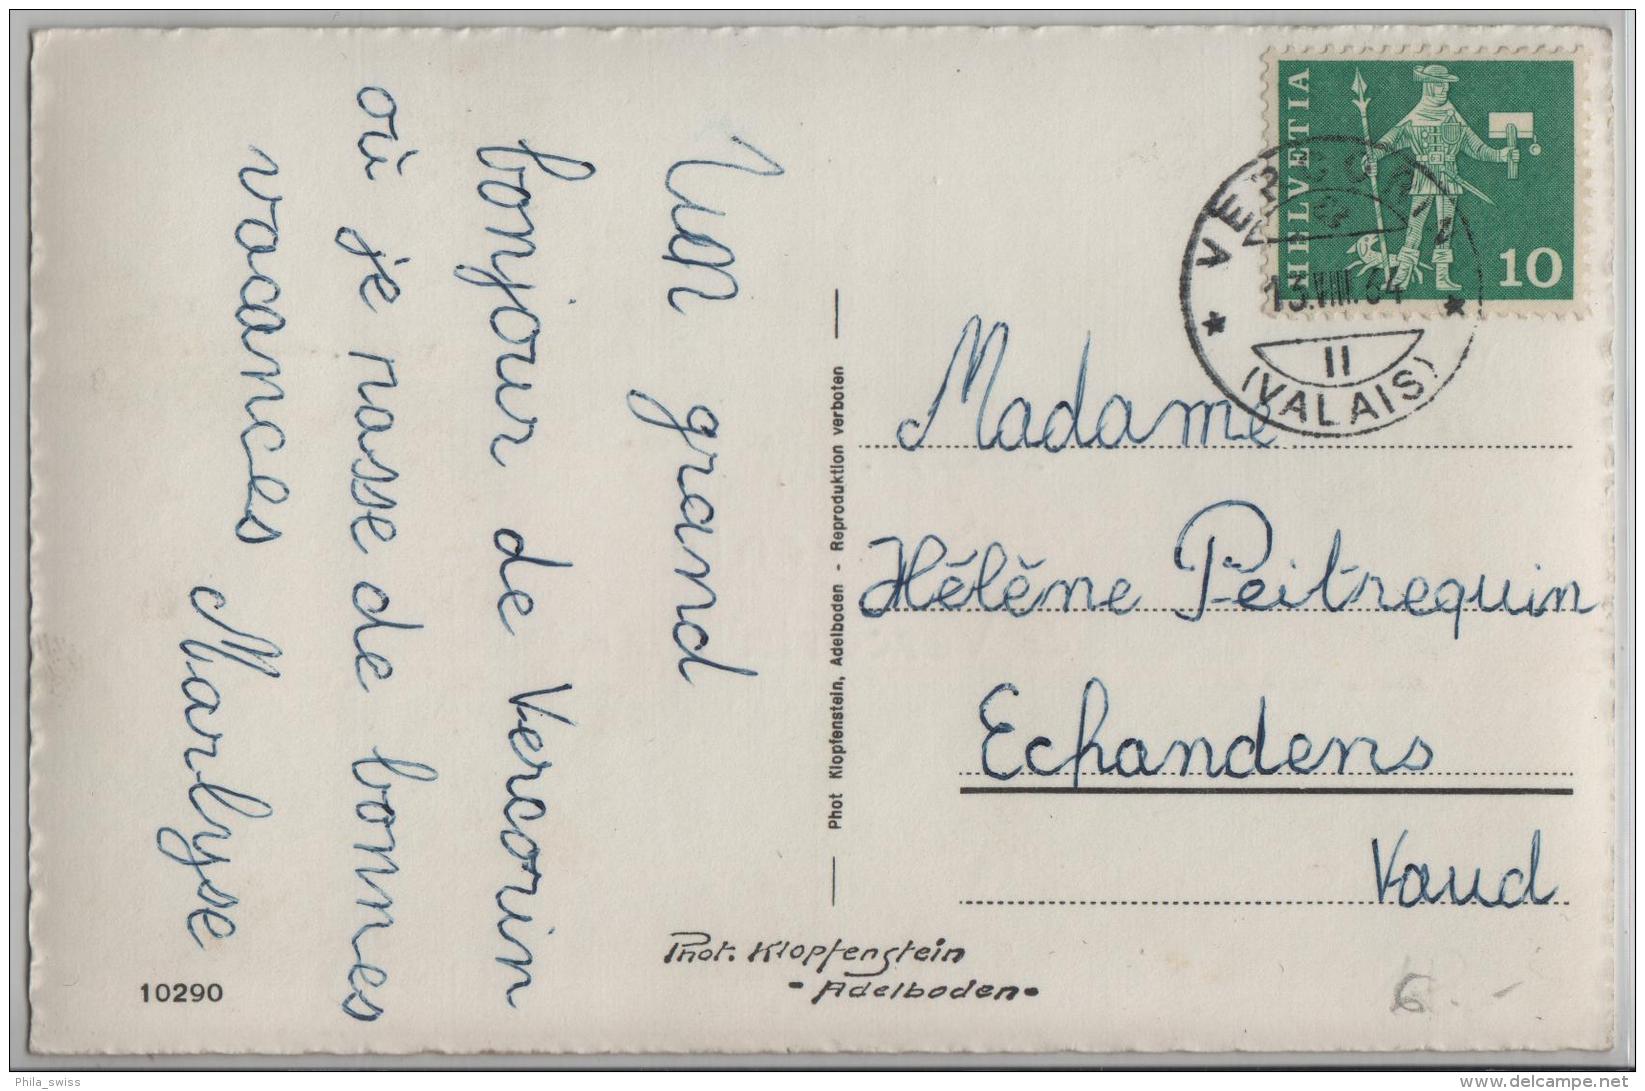 Un grand
bonjour de Vercorin
où je passe de bonnes
vacances
Marlyse
10290
Phot. Klopfenstein
- Adelboden -
Phot Klopfenstein, Adelboden - Reproduktion verboten
HELVETIA
10
VERCORIN
13.VIII.64
II
(VALAIS)
Madame
Hélène Peitrequin
Echandens
Vaud
6.-
Phila_swiss
www.delcampe.net